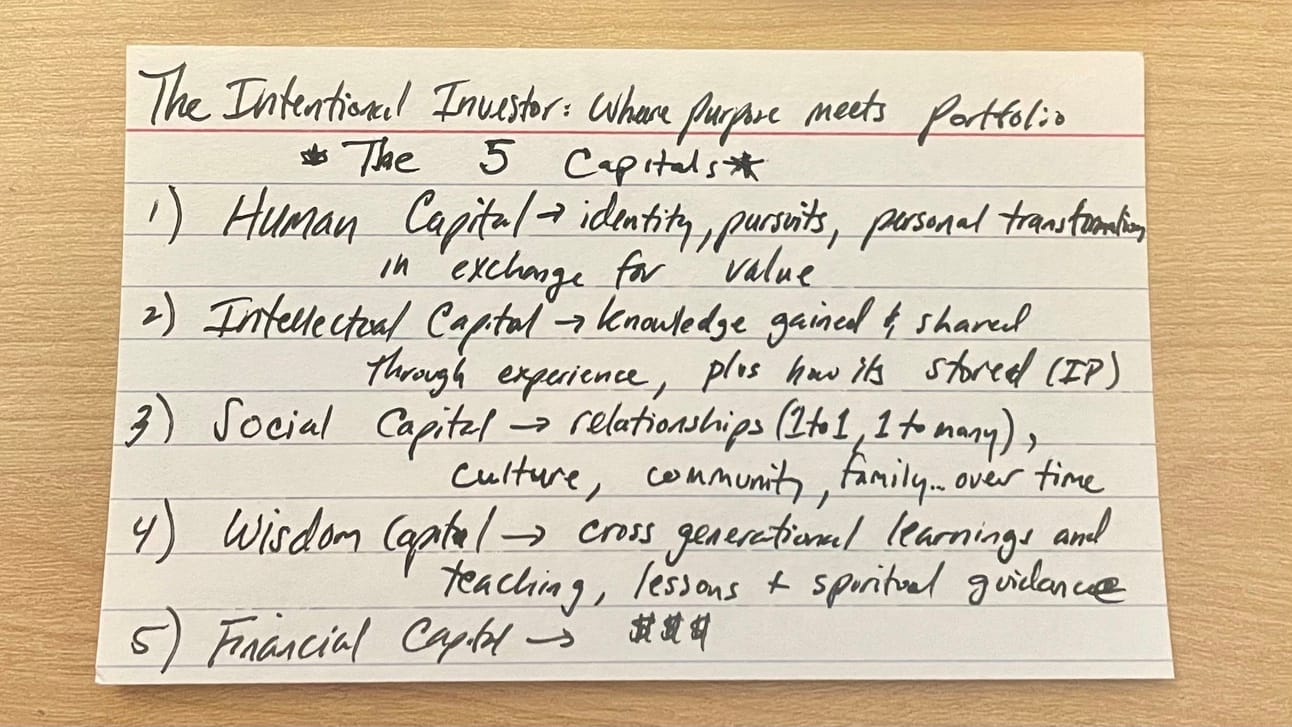 The Intentional Investor: Where purpose meets Portfolio
* The 5 Capitals *
1) Human Capital → identity, pursuits, personal transformation
in exchange for value
2) Intellectual Capital → knowledge gained & shared
through experience, plus how its stored (IP)
3) Social Capital → relationships (1 to 1, 1 to many),
culture, community, family... over time
4) Wisdom Capital → cross generational learnings and
teaching, lessons + spiritual guidance
5) Financial Capital → $$$